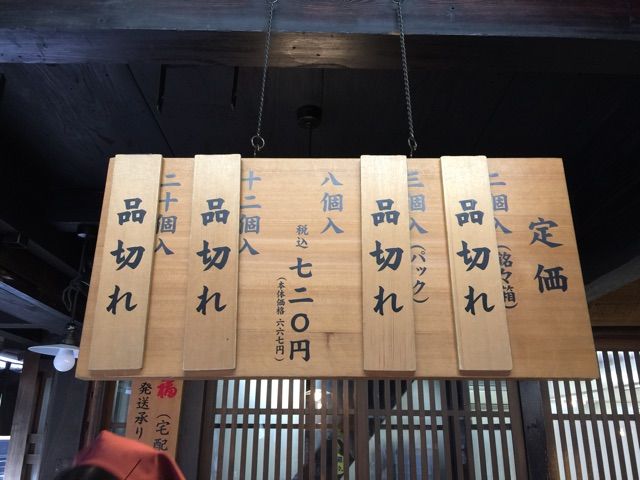 定価
二個入(銘々箱)
品切れ
三個入(パック)
品切れ
八個入
税込 七二〇円
(本体価格 六六七円)
十二個入
品切れ
二十個入
品切れ
福(宅配
発送承り